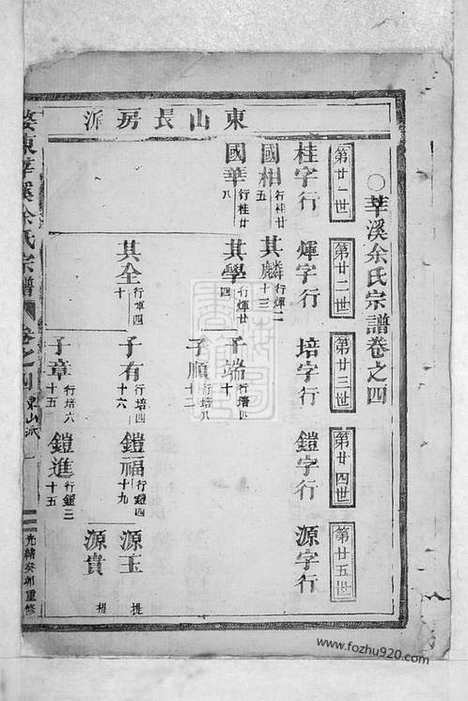 東山長房派
○莘溪余氏宗譜卷之四
第廿一世
第廿二世
第廿三世
第廿四世
第廿五世
桂字行
煇字行
培字行
鎧字行
源字行
國相 行桂廿五
其麟 行煇二十三
國華 行桂廿八
其學 行煇廿四
子端
子順 行培八十二
其全 行煇四十
子有 行培四十六
鎧福 行鎧四十九
源玉
子章 行培六十五
鎧進 行鎧三十五
源貴
婺東莘溪余氏宗譜
卷之四
東山派
光緒癸卯重修
www.fozhu920.com